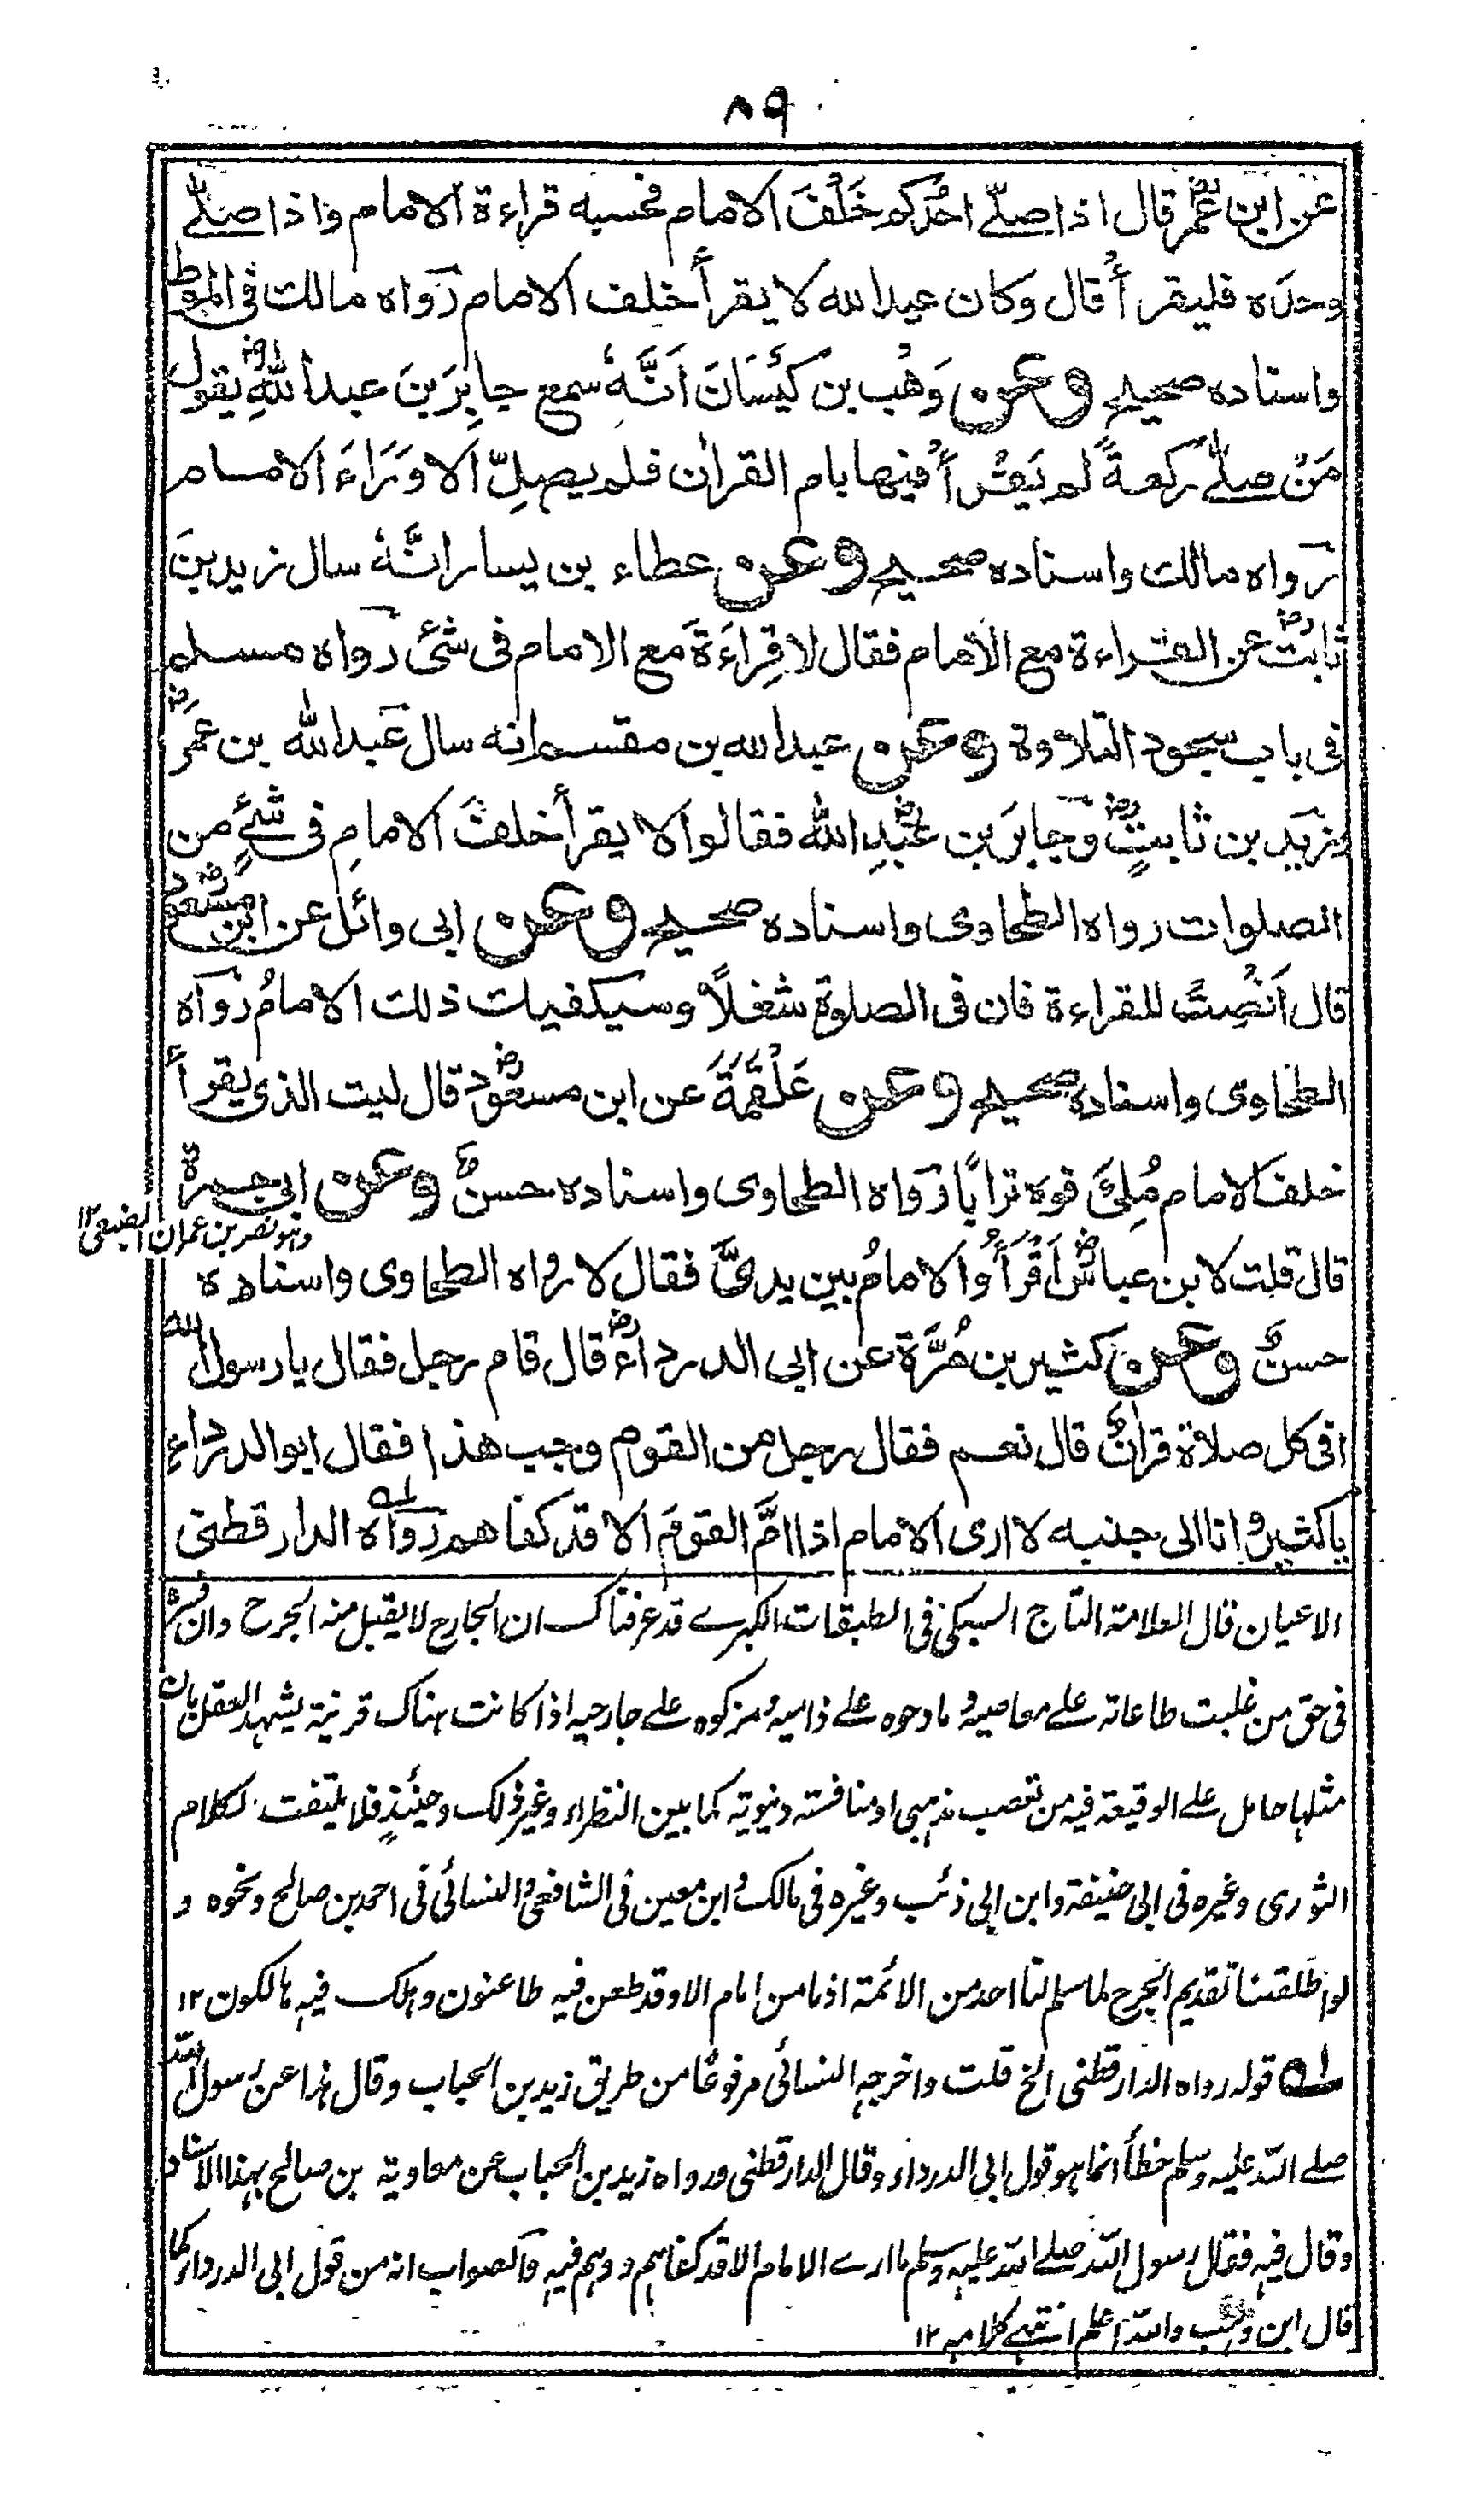 ٨٩
عن ابن عمر رض قال اذا صلّے احدُكم خَلْفَ الامام فحسبه قراءة الامام واذا صلّے
وحدَه فليقرأْ قال وكان عبدالله لا يقرأُ خلف الامام رَواه مالك فى المؤطا
واسناده صحيح وعن وَهْب بن كَيْسَانَ اَنَّهٗ سمع جابِرَ بنَ عبدالله رض يقول
مَنْ صلّٰے ركعةً لم يَقْرأْ فيها بام القراٰن فلم يصلِّ الا وَرَاءَ الامام
رَواه مالك واسناده صحيح وعن عطاء بن يسار انَّهٗ سال زيد بنَ
ثابت رض عن القراءة مع الامام فقال لا قِراءَةَ مع الامام فى شئ رَواه مسلم
فى باب سجود التلاوة وعن عبدالله بن مقسم انه سال عَبدالله بن عمر رض
وزيَد بن ثابتٍ رض وجابرَ بن عَبْدِالله رض فقالوا لا يقرأُ خلفَ الامامِ فى شئٍ من
الصلوات رواه الطحاوى واسناده صحيح وعن ابى وائل عن ابن مسعود رض
قال اَنْصِتْ للقراءة فان فى الصلوة شغلاً وسيكفيك ذلك الامامُ رَواه
الطحاوى واسناده صحيح وعن عَلْقَمَةَ عن ابن مسعود رض قال ليت الذى يقرأُ
خلف الامام مُلِئَ فوه ترابًا رَواه الطحاوى واسناده حسنٌ وعن ابى جمرة
وهو نصر بن عمران الضبعى ١٢
قال قلت لابن عباس رض اَقْرَأُ والامامُ بين يدىَّ فقال لا رواه الطحاوى واسناده
حسنٌ وعن كثير بن مُرَّة عن ابى الدرداء رض قال قام رجل فقال يا رسول الله
افى كل صلاة قراٰنٌ قال نعم فقال رجل من القوم وجب هذا فقال ابو الدرداء
يا كثير وانا الى جنبه لا ارى الامام اذا امَّ القومَ الا قد كفاهم رَواه الدارقطنى
الاعيان قال العلامة التاج السبكى فى الطبقات الكبرے قد عرفناك ان الجارح لا يقبل منه الجرح وان فسره
فى حق من غلبت طاعاته علے معاصيه ومادحوه علے ذاميه ومزكوه علے جارحيه اذا كانت هناك قرينة يشهد العقل بان
مثلها حامل علے الوقيعة فيه من تعصب مذهبى او منافسته دنيوية كما بين النظراء وغير ذلك وحينئذٍ فلا يلتفت لكلام
الثورى وغيره فى ابى حنيفة وابن ابى ذئب وغيره فى مالك وابن معين فى الشافعى والنسائى فى احمد بن صالح ونحوه و
لو اطلقنا تقديم الجرح لما سلم لنا احد من الائمة اذ ما من امام الا وقد طعن فيه طاعنون وهلك فيه هالكون ١٢
له قوله رواه الدارقطنى الخ قلت واخرجه النسائى مرفوعًا من طريق زيد بن الحباب وقال هذا عن رسول الله
صلے الله عليه وسلم خطأ انما هو قول ابى الدرداء وقال الدارقطنى ورواه زيد بن الحباب عن معاوية بن صالح بهذا الاسناد
وقال فيه فقال رسول الله صلے الله عليه وسلم ما ارے الامام الا قد كفاهم ووهم فيه والصواب انه من قول ابى الدرداء كما
قال ابن وهب والله اعلم انتهے كلامه ١٢